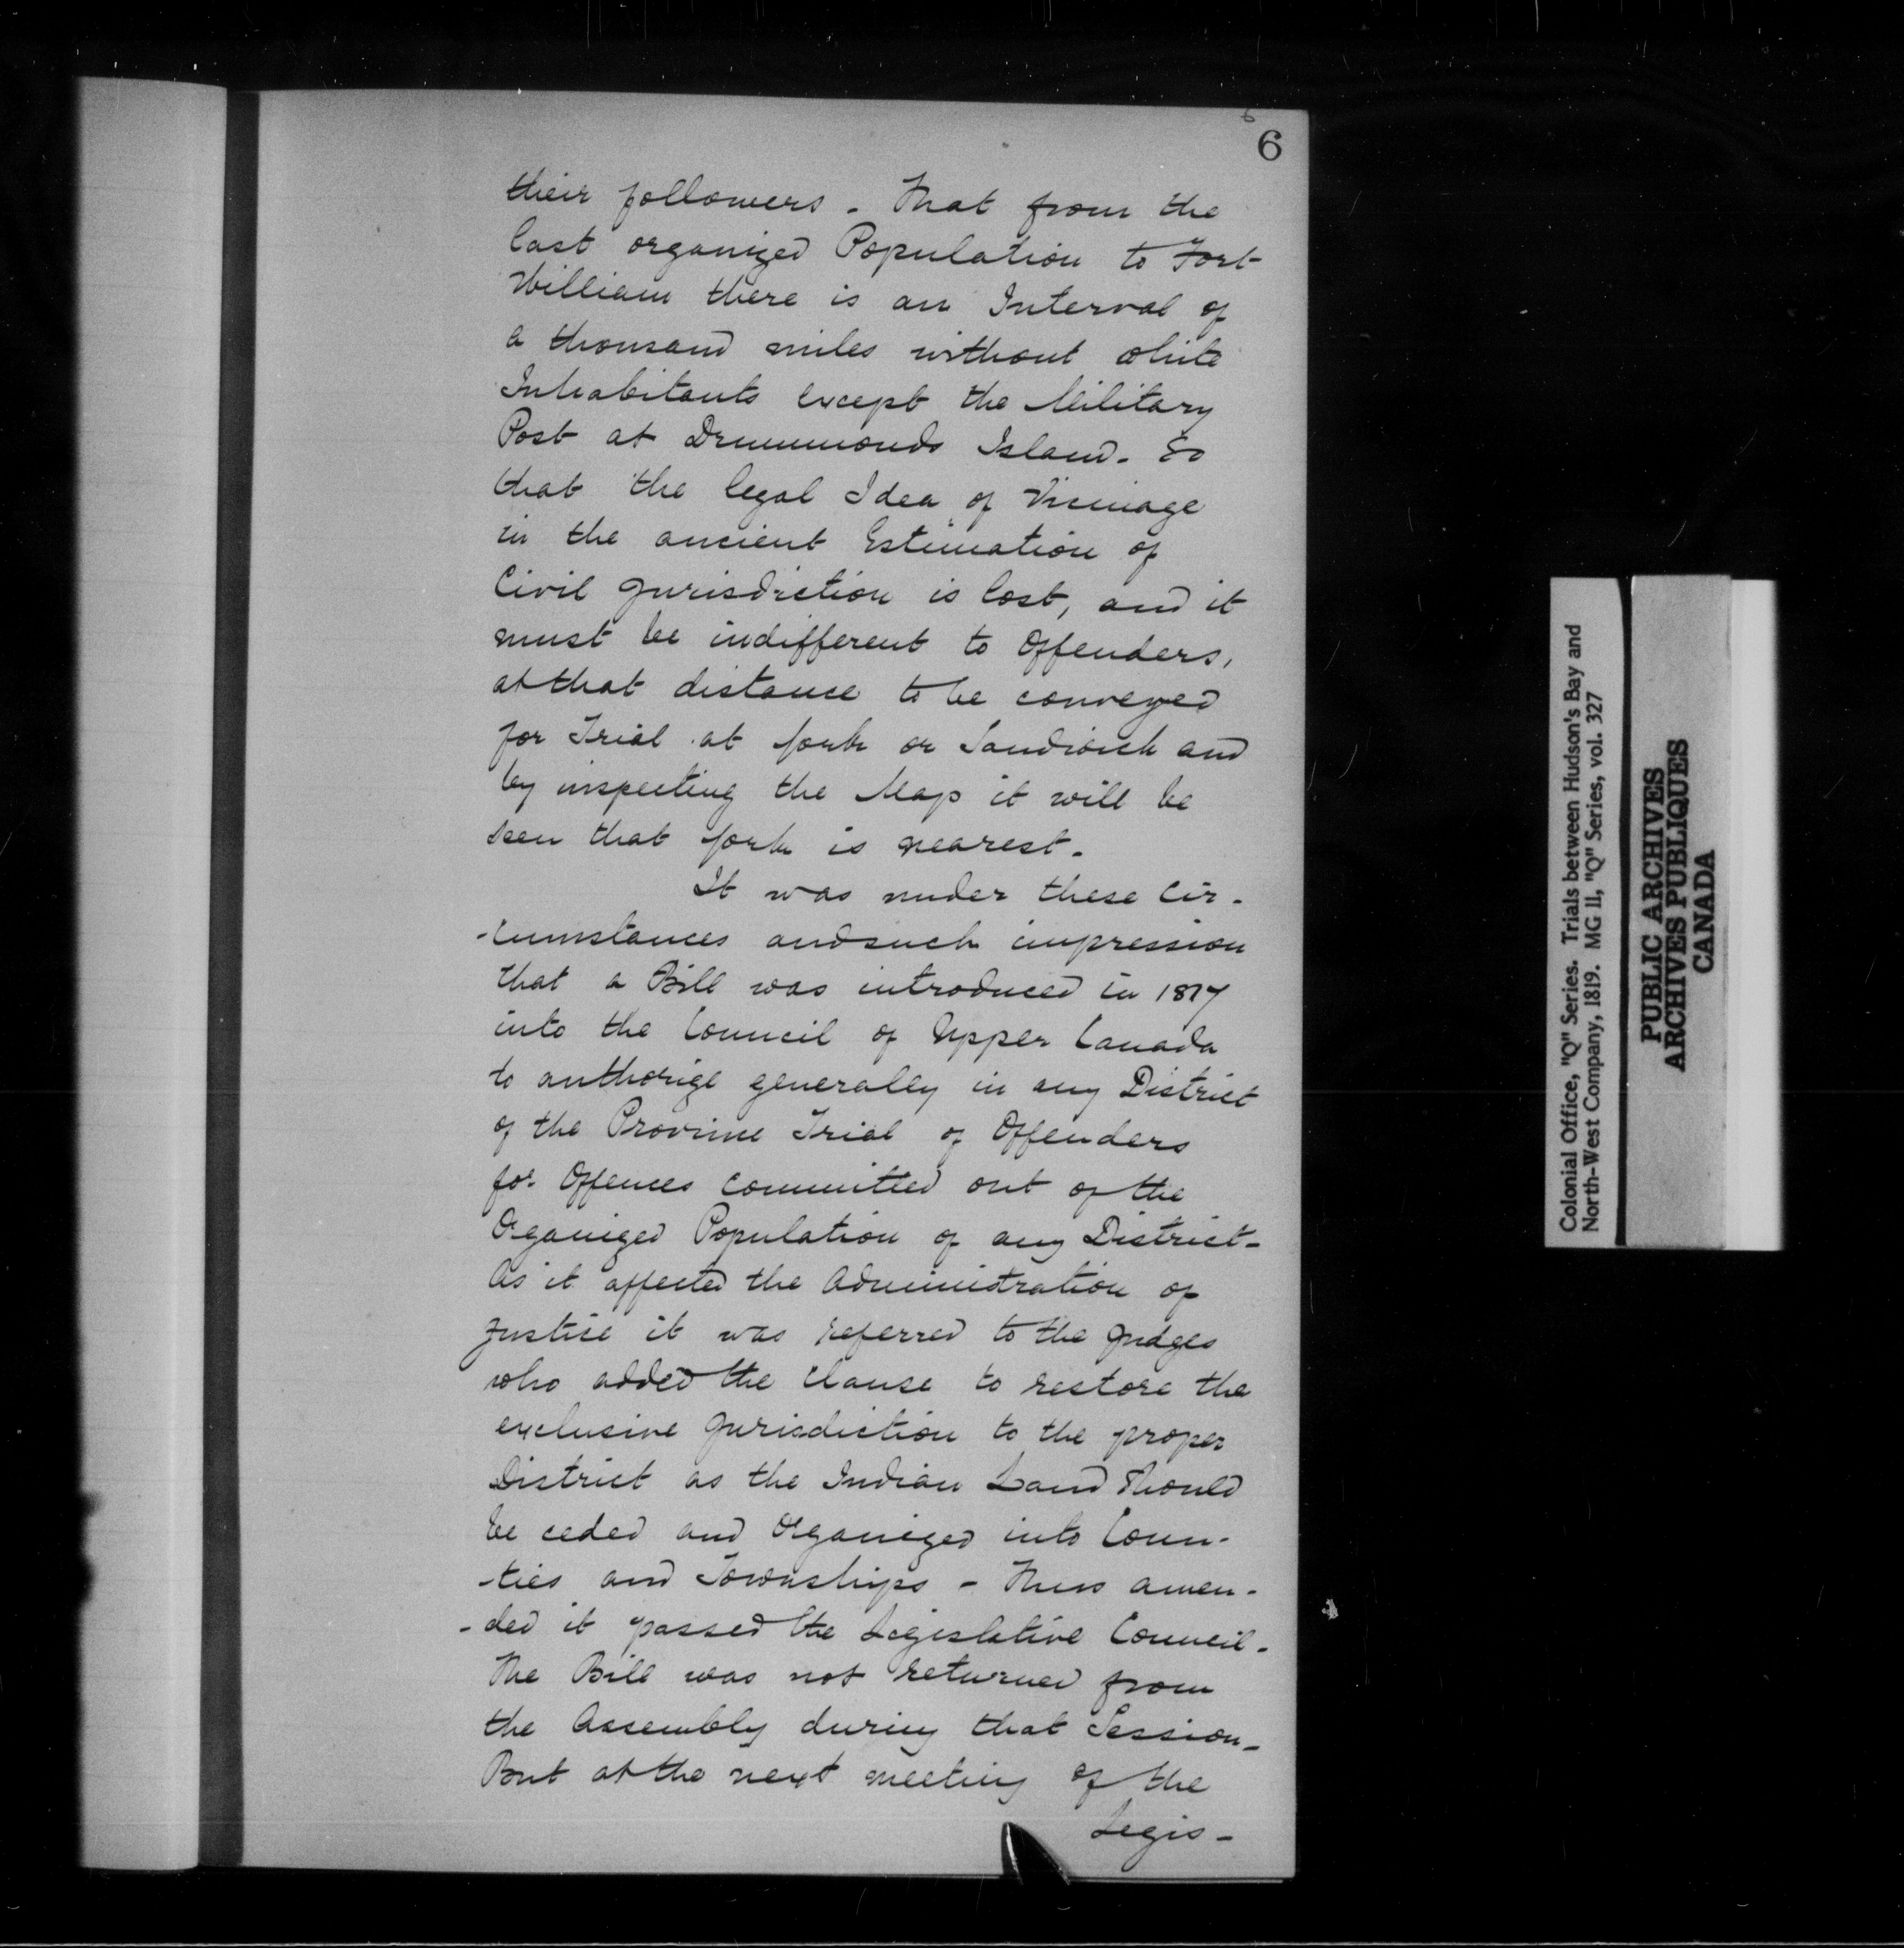 6
6
their followers. That from the
last organized Population to Fort
William there is an Interval of
a thousand miles without white
Inhabitants except the Military
Post at Drummonds Island. So
that the legal Idea of Vicinage
in the ancient Estimation of
Civil Jurisdiction is lost, and it
must be indifferent to Offenders,
at that distance to be conveyed
for Trial at York or Sandwich and
by inspecting the Map it will be
seen that York is nearest.
It was under these Cir-
-cumstances and such impression
that a Bill was introduced in 1817
into the Council of Upper Canada
to authorize generally in any District
of the Province Trial of Offenders
for Offences committed out of the
Organized Population of any District-
As it affected the Administration of
Justice it was referred to the Judges
who added the Clause to restore the
exclusive Jurisdiction to the proper
District as the Indian Land Should
be ceded and Organized into Coun-
-ties and Townships - Thus amen-
-ded it passed the Legislative Council-
The Bill was not returned from
the Assembly during that Session-
But at the next meeting of the
Legis-
Colonial Office, "Q" Series. Trials between Hudson's Bay and
North-West Company, 1819. MG 11, "Q" Series, vol. 327
PUBLIC ARCHIVES
ARCHIVES PUBLIQUES
CANADA